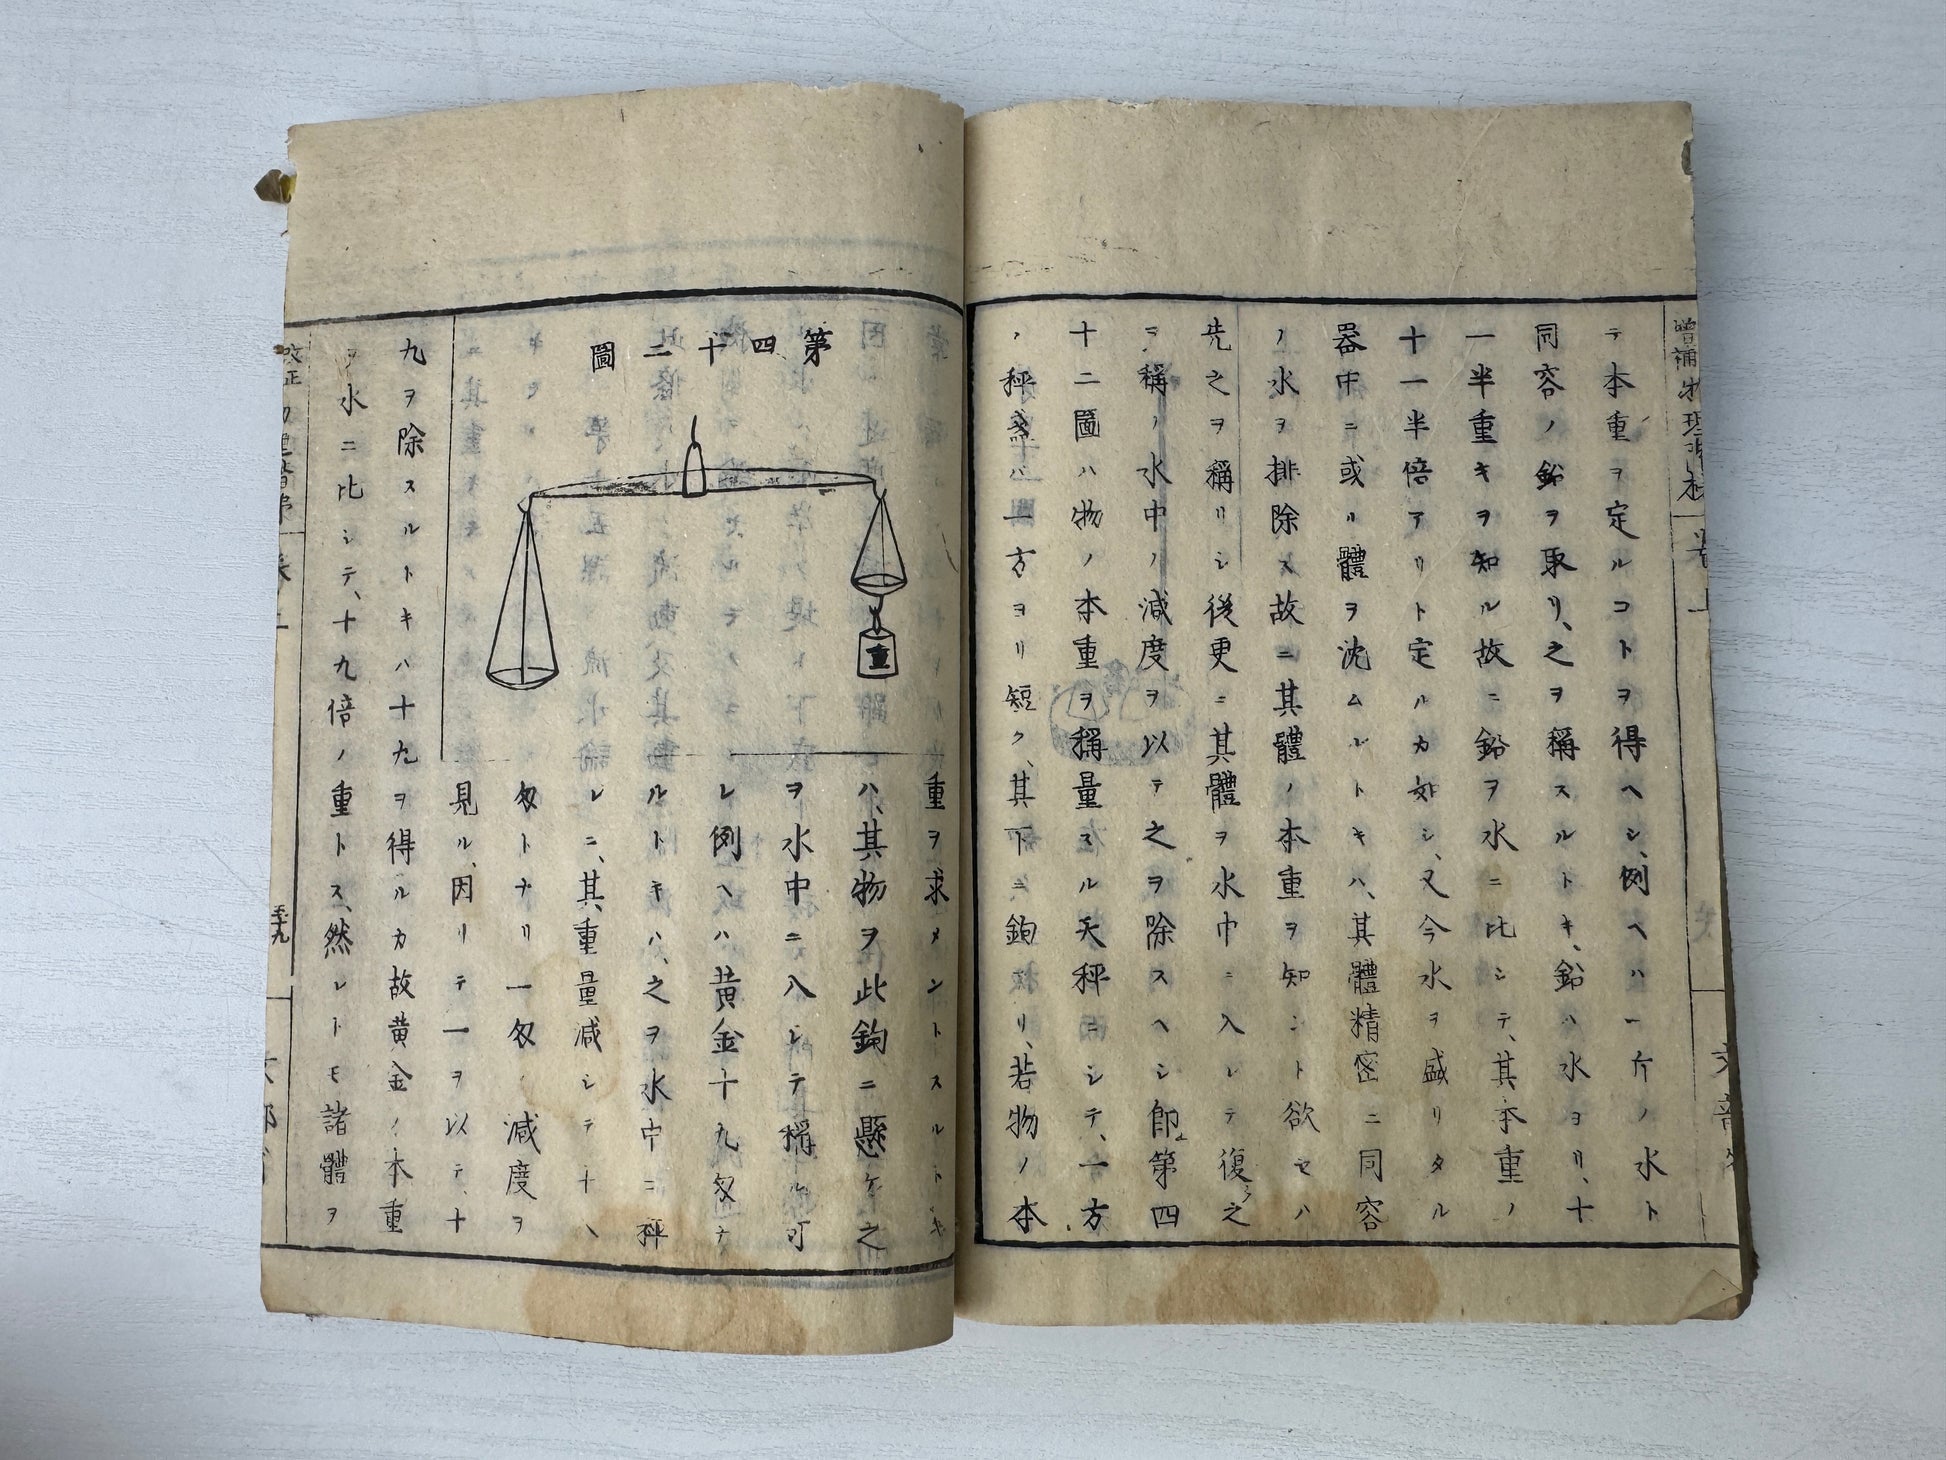 テ本重ヲ定ルコトヲ得ヘシ、例ヘハ一斤ノ水ト
同容ノ鉛ヲ取リ、之ヲ稱スルトキ、鉛ハ水ヨリ、十
一半重キヲ知ル故ニ鉛ヲ水ニ比シテ、其本重ノ
十一半倍アリト定ルカ如シ、又今水ヲ盛リタル
器中ニ或ル體ヲ沈ムルトキハ、其體精密ニ同容
ノ水ヲ排除ス故ニ其體ノ本重ヲ知ント欲セハ
先之ヲ稱リシ後更ニ其體ヲ水中ニ入レテ復之
ヲ稱リ水中ノ減度ヲ以テ之ヲ除スヘシ即第四
十二圖ハ物ノ本重ヲ稱量スル天秤ニシテ、一方
ノ秤盞ハ一方ヨリ短ク、其下ニ鉤アリ、若物ノ本
第四十二圖
重
重ヲ求メントスルトキ
ハ、其物ヲ此鉤ニ懸ケ之
ヲ水中ニ入レテ稱ル可
シ例ヘハ黄金十九匁ナ
ルトキハ、之ヲ水中ニ秤
レニ、其重量減シテ十八
匁トナリ一匁ノ減度ヲ
見ル、因リテ一ヲ以テ、十
九ヲ除スルトキハ十九ヲ得ルカ故黄金ノ本重
ヲ水ニ比シテ、十九倍ノ重トス、然レトモ諸體ヲ
改正
五十九